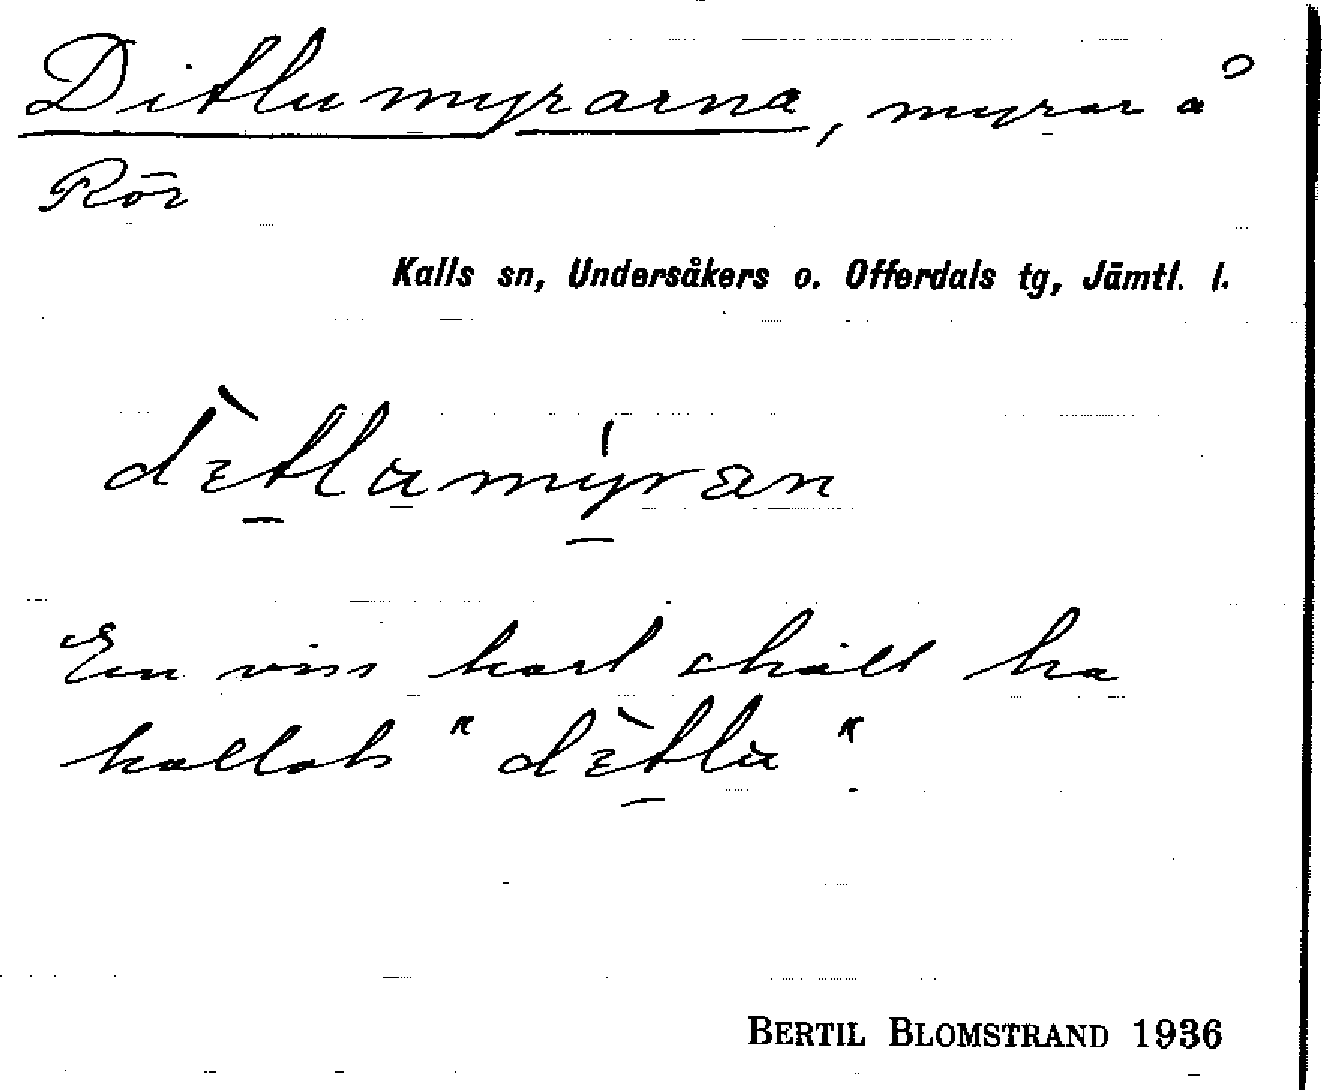 Ditlumyrarna, myrar å
Rör
Kalls sn, Undersåkers o. Offerdals tg, Jämtl. l.
dètlumýran
En viss karl skall ha
kallats "dètlu"
BERTIL BLOMSTRAND 1936